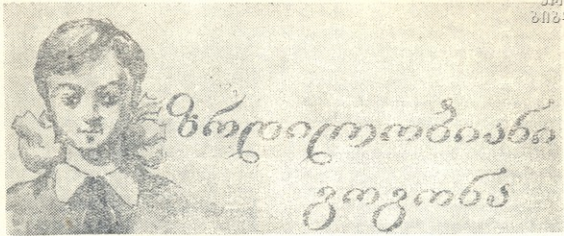 ზრდილობიანი
გოგონა